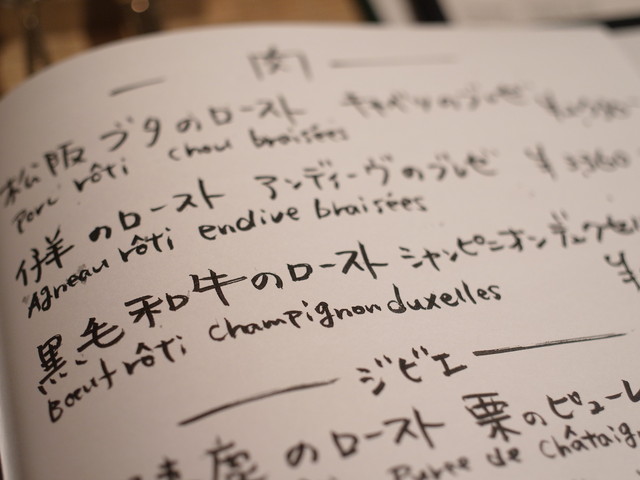 肉
松阪ブタのロースト キャベツのブレゼ
Porc rôti chou braisées
仔羊のロースト アンディーヴのブレゼ ¥3360
Agneau rôti endive braisées
黒毛和牛のロースト シャンピニオンデュクセル ¥
Bœuf rôti champignon duxelles
ジビエ
のロースト 栗のピューレ
Purée de châtaign